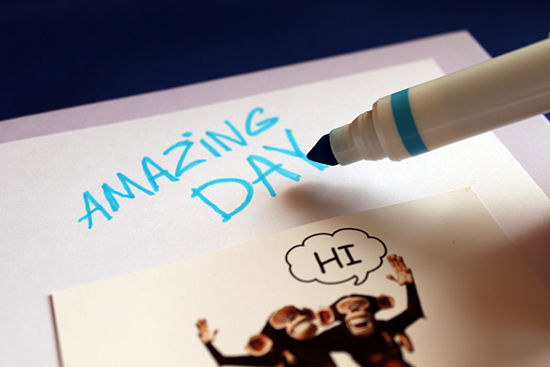 AMAZING
DAY
HI